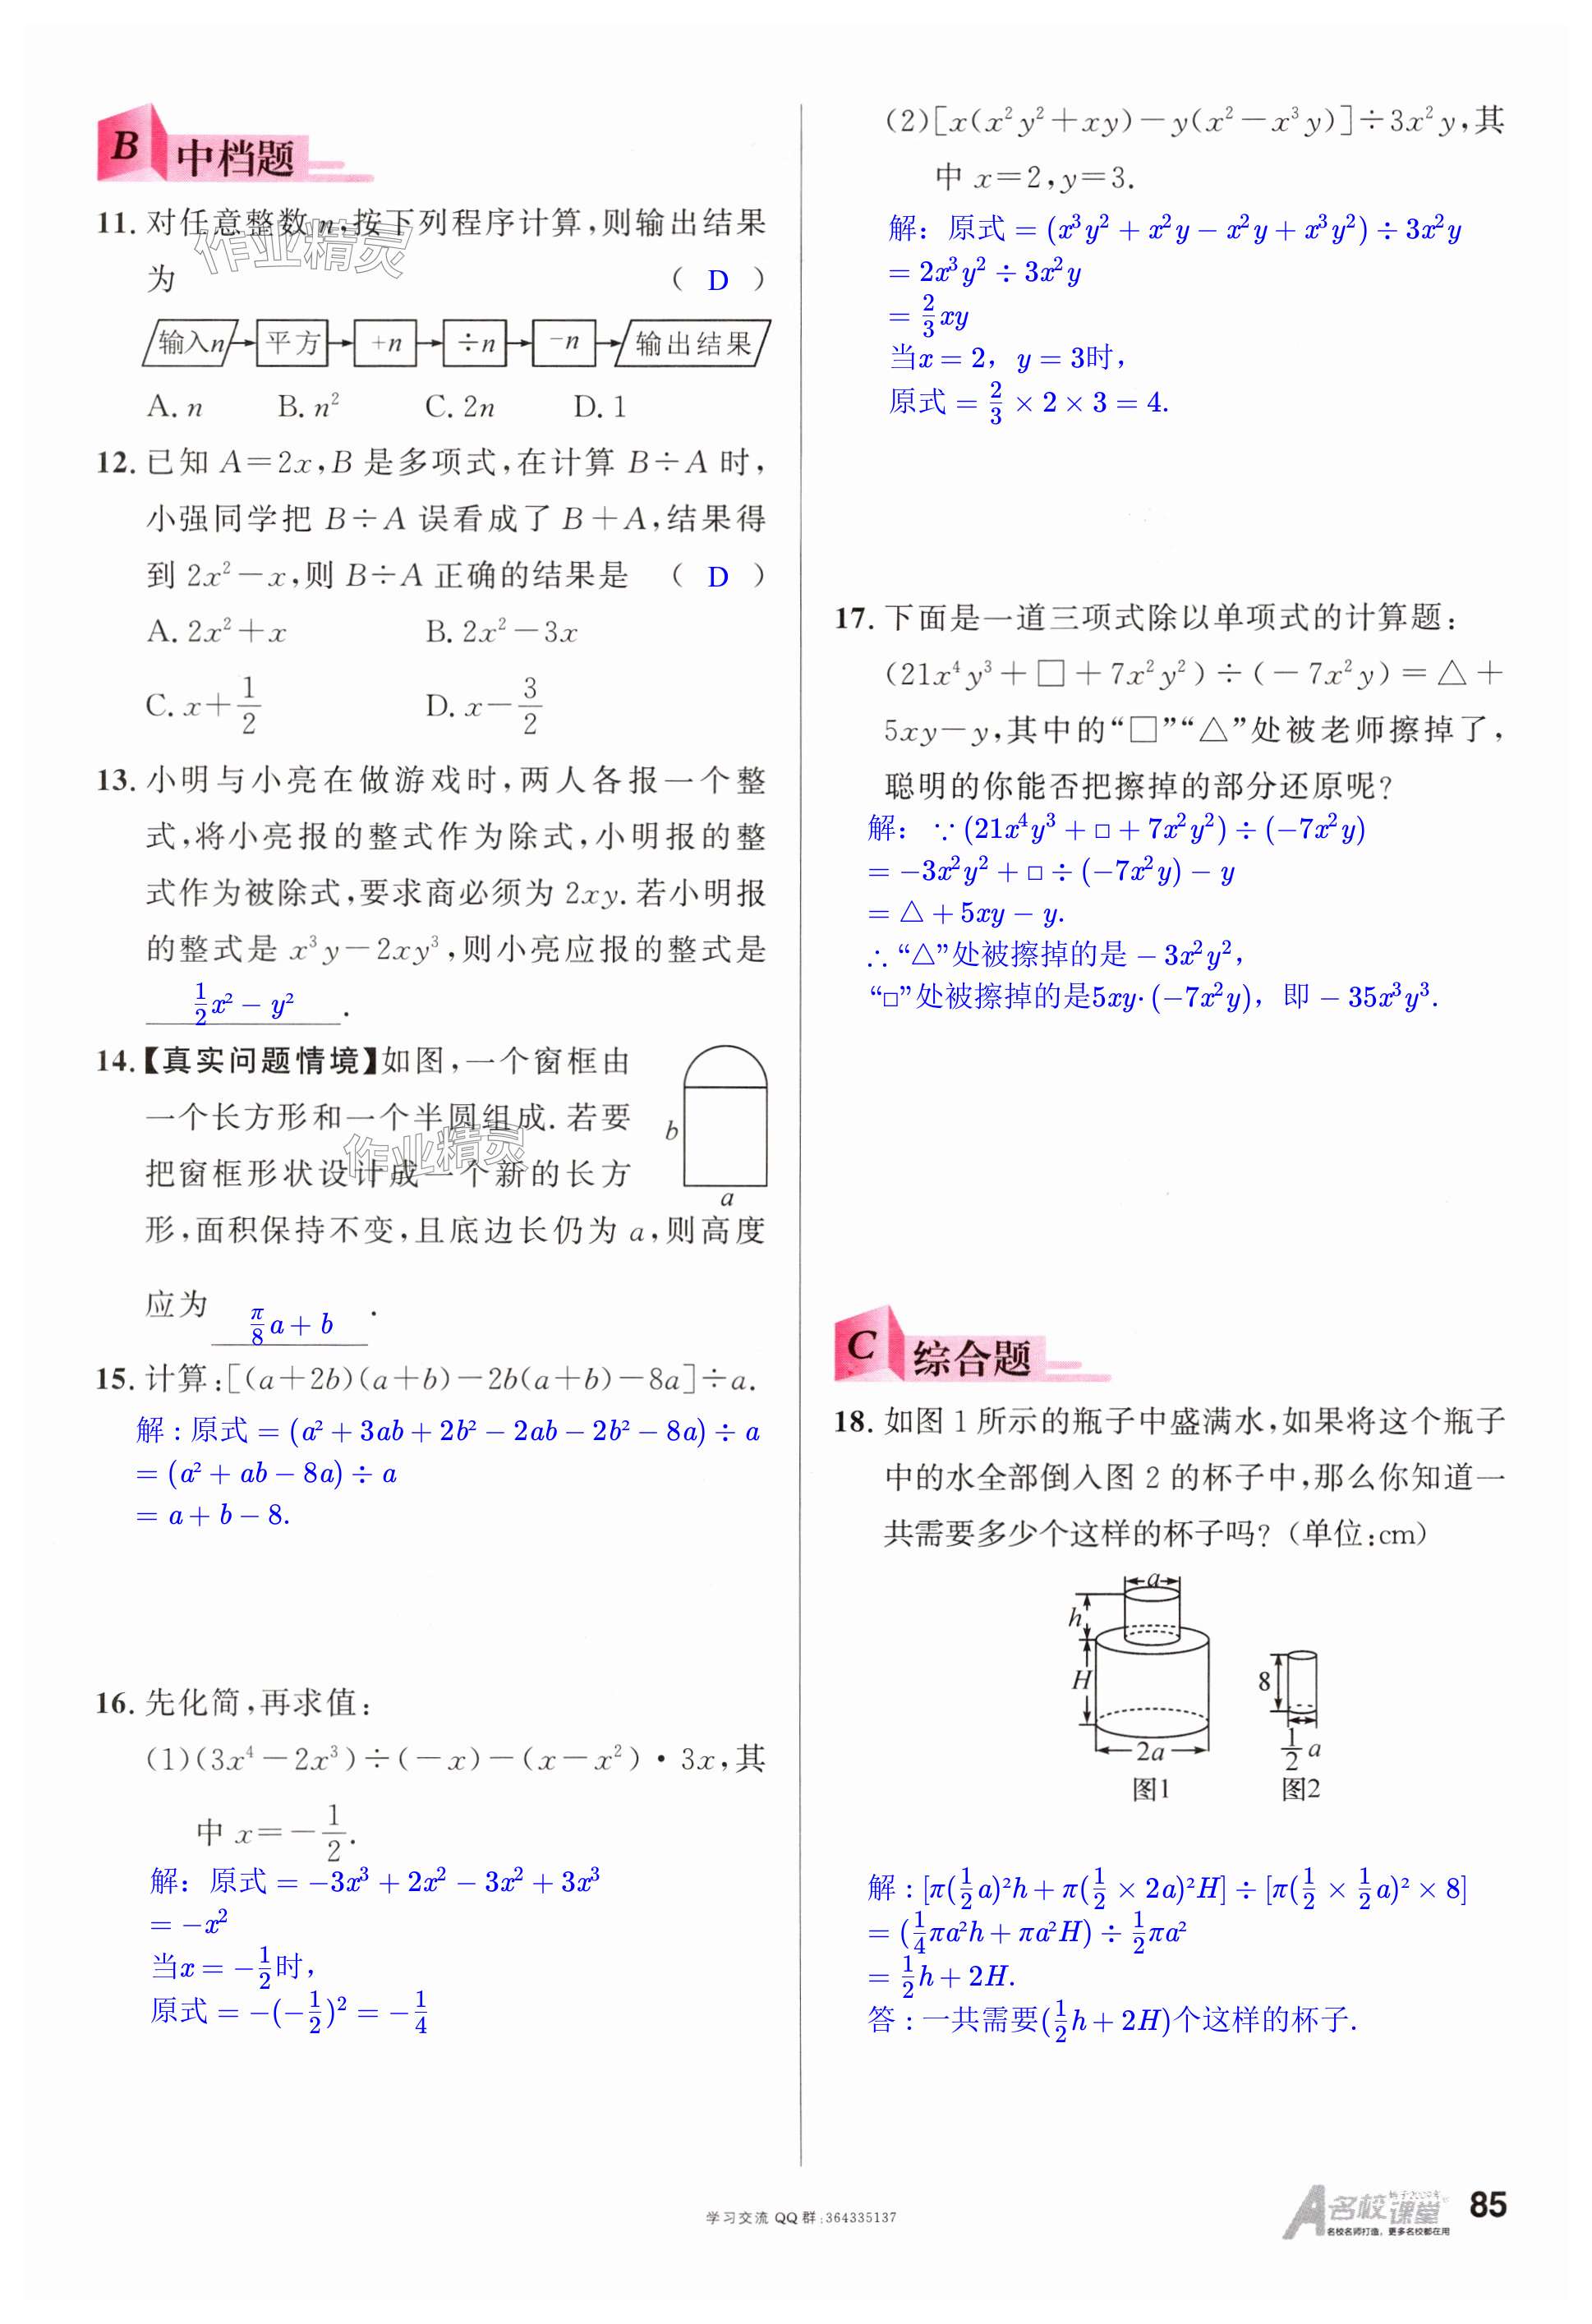 B 中档题
11. 对任意整数 n,按下列程序计算,则输出结果
为 ( D )
输入n → 平方 → +n → ÷n → -n → 输出结果
A. n B. n² C. 2n D. 1
12. 已知 A=2x,B 是多项式,在计算 B÷A 时,
小强同学把 B÷A 误看成了 B+A,结果得
到 2x²-x,则 B÷A 正确的结果是 ( D )
A. 2x²+x B. 2x²-3x
C. x+1/2 D. x-3/2
13. 小明与小亮在做游戏时,两人各报一个整
式,将小亮报的整式作为除式,小明报的整
式作为被除式,要求商必须为 2xy. 若小明报
的整式是 x³y-2xy³,则小亮应报的整式是
1/2x²-y².
14.【真实问题情境】如图,一个窗框由
一个长方形和一个半圆组成. 若要
把窗框形状设计成一个新的长方
形,面积保持不变,且底边长仍为 a,则高度
应为 π/8a+b.
b
a
15. 计算:[(a+2b)(a+b)-2b(a+b)-8a]÷a.
解:原式=(a²+3ab+2b²-2ab-2b²-8a)÷a
=(a²+ab-8a)÷a
=a+b-8.
16. 先化简,再求值:
(1)(3x⁴-2x³)÷(-x)-(x-x²)·3x,其
中 x=-1/2.
解:原式=-3x³+2x²-3x²+3x³
=-x²
当x=-1/2时,
原式=-(-1/2)²=-1/4
(2)[x(x²y²+xy)-y(x²-x³y)]÷3x²y,其
中 x=2,y=3.
解:原式=(x³y²+x²y-x²y+x³y²)÷3x²y
=2x³y²÷3x²y
=2/3xy
当x=2,y=3时,
原式=2/3×2×3=4.
17. 下面是一道三项式除以单项式的计算题:
(21x⁴y³+□+7x²y²)÷(-7x²y)=△+
5xy-y,其中的“□”“△”处被老师擦掉了,
聪明的你能否把擦掉的部分还原呢?
解:∵(21x⁴y³+□+7x²y²)÷(-7x²y)
=-3x²y²+□÷(-7x²y)-y
=△+5xy-y.
∴“△”处被擦掉的是-3x²y²,
“□”处被擦掉的是5xy·(-7x²y),即-35x³y³.
C 综合题
18. 如图 1 所示的瓶子中盛满水,如果将这个瓶子
中的水全部倒入图 2 的杯子中,那么你知道一
共需要多少个这样的杯子吗?(单位:cm)
a
h
H
2a
图1
8
1/2 a
图2
解:[π(1/2a)²h+π(1/2×2a)²H]÷[π(1/2×1/2a)²×8]
=(1/4πa²h+πa²H)÷1/2πa²
=1/2h+2H.
答:一共需要(1/2h+2H)个这样的杯子.
作业精灵
作业精灵
学习交流 QQ 群:364335137
名校课堂
名校名师打造,更多名校都在用
85